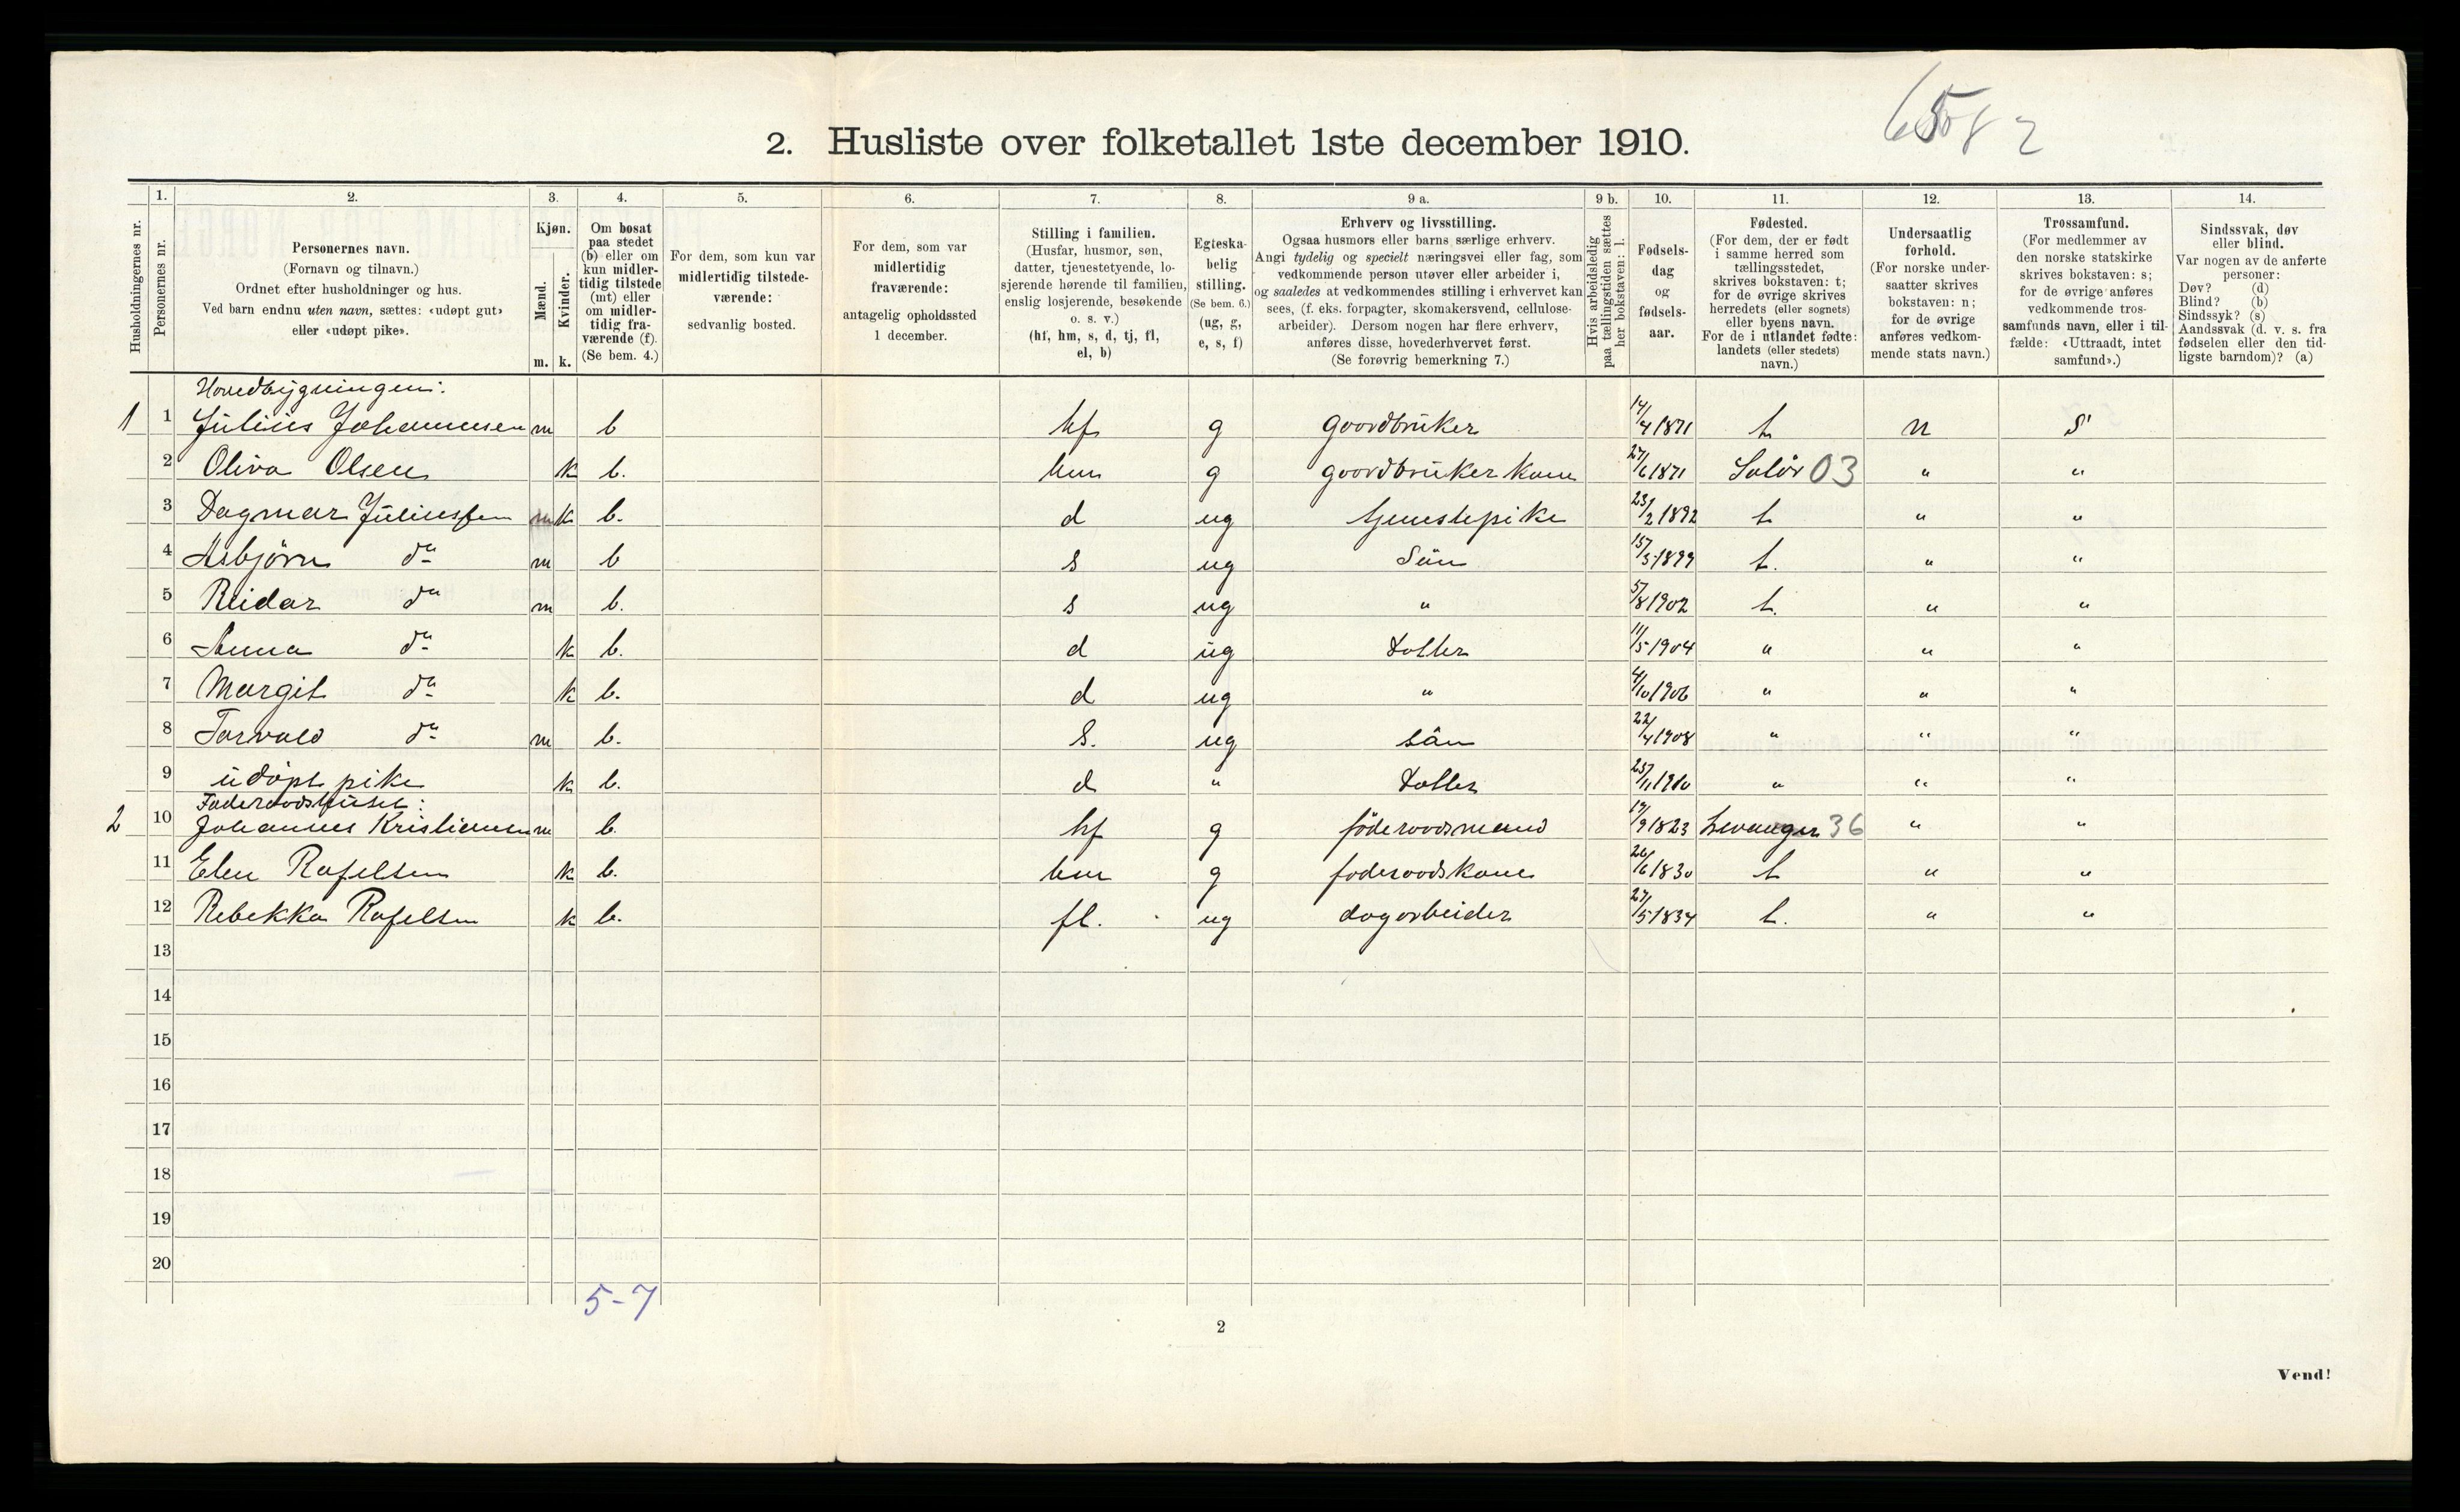 2. Husliste over folketallet 1ste december 1910.
Husholdningernes nr.
1. 2. 3. 4. 5. 6. 7. 8. 9 a. 9 b. 10. 11. 12. 13. 14.
Personernes nr.
Personernes navn.
(Fornavn og tilnavn.)
Ordnet efter husholdninger og hus.
Ved barn endnu uten navn, sættes: «udøpt gut»
eller «udøpt pike».
Kjøn.
Mænd.
Kvinder.
m. k.
Om bosat
paa stedet
(b) eller om
kun midler-
tidig tilstede
(mt) eller
om midler-
tidig fra-
værende (f).
(Se bem. 4.)
For dem, som kun var
midlertidig tilstede-
værende:
sedvanlig bosted.
For dem, som var
midlertidig
fraværende:
antagelig opholdssted
1 december.
Stilling i familien.
(Husfar, husmor, søn,
datter, tjenestetyende, lo-
sjerende hørende til familien,
enslig losjerende, besøkende
o. s. v.)
(hf, hm, s, d, tj, fl,
el, b)
Egteska-
belig
stilling.
(Se bem. 6.)
(ug, g,
e, s, f)
Erhverv og livsstilling.
Ogsaa husmors eller barns særlige erhverv.
Angi tydelig og specielt næringsvei eller fag, som
vedkommende person utøver eller arbeider i,
og saaledes at vedkommendes stilling i erhvervet kan
sees, (f. eks. forpagter, skomakersvend, cellulose-
arbeider). Dersom nogen har flere erhverv,
anføres disse, hovederhvervet først.
(Se forøvrig bemerkning 7.)
Hvis arbeidsledig
paa tællingstiden sættes
her bokstaven: l.
Fødsels-
dag
og
fødsels-
aar.
Fødested.
(For dem, der er født
i samme herred som
tællingsstedet,
skrives bokstaven: t;
for de øvrige skrives
herredets (eller sognets)
eller byens navn.
For de i utlandet fødte:
landets (eller stedets)
navn.)
Undersaatlig
forhold.
(For norske under-
saatter skrives
bokstaven: n;
for de øvrige
anføres vedkom-
mende stats navn.)
Trossamfund.
(For medlemmer av
den norske statskirke
skrives bokstaven: s;
for de øvrige anføres
vedkommende tros-
samfunds navn, eller i til-
fælde: «Uttraadt, intet
samfund».)
Sindssvak, døv
eller blind.
Var nogen av de anførte
personer:
Døv? (d)
Blind? (b)
Sindssyk? (s)
Aandssvak (d. v. s. fra
fødselen eller den tid-
ligste barndom)? (a)
Hovedbygningen:
1 1 Julius Johannesen m b hf g gaardbruker 14/4 1871 t n S
2 Oliva Olsen k b. hm g gaardbruker kone 27/6 1871 Solør 03 " "
3 Dagmar Juliussen k b. d ug tjenestepike 23/2 1892 t " "
4 Asbjörn do m b s ug Sön 15/3 1899 t. " "
5 Reidar do m b. s ug " 5/8 1902 t. " "
6 Anna do k b. d ug Datter 11/5 1904 " " "
7 Margit do k b. d ug " 4/10 1906 " " "
8 Torvald do m b. S. ug sön 22/4 1908 " " "
9 udöpt pike k b. d " Datter 25/11 1910 " " "
Föderaadshuset:
2 10 Johannes Kristiansen m b. hf g föderaadsmand 19/9 1823 Levanger 36 " "
11 Elen Rafelsen k b. hm g foderaadskone 26/6 1830 t " "
12 Rebekka Rafelsen k b. fl. ug dagarbeider 27/5 1834 t. " "
13
14
15
16
17
18
19
20
5-7
2
Vend!